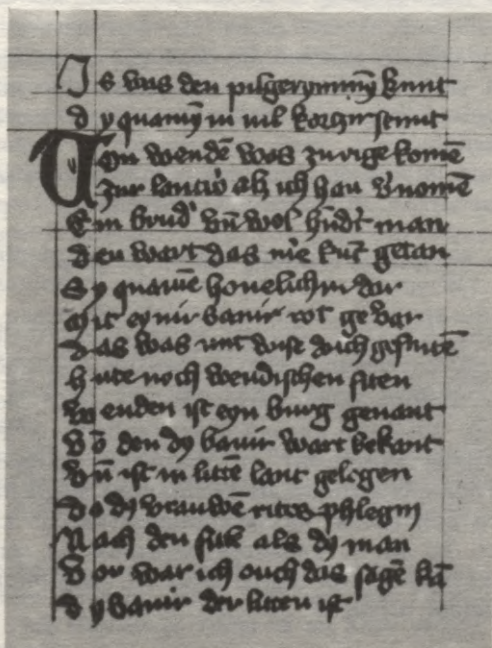 Is was den pilgerynnny kunt
dy quamy in uil korczir stunt
Von wendē was zu rige komē
Zur lantw̓ als ich han v̓nomē
Ein brud̓ vn̄ wol hūdt̓ man
den wart das me̓ kūt getan
Sy quamē houelichin dar
Mit eynir banir rot ge var
das was mit wise dorch gesnitē
hute noch wendischen siten
wenden ist eyn burg genant
vō den dy banir wart bekant
vn̄ ist in littē lant gelegen
do dy vrauwē ritēs phlegin
Nach den sitē als dy man
vor war ich ouch das sagē kā
dy banir der litten ist